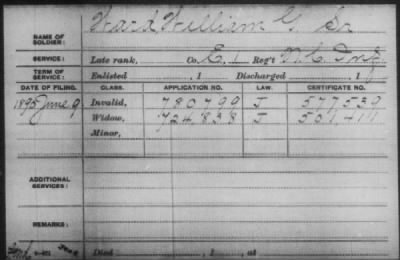 NAME OF SOLDIER: Ward William G. Sr
SERVICE: Late rank, Co. E. 1 Reg't N.C. Inf.
TERM OF SERVICE: Enlisted , 1 Discharged , 1
DATE OF FILING. CLASS. APPLICATION NO. LAW. CERTIFICATE NO.
1895 June 9 Invalid, 780799 J 577539
Widow, 724,838 J 501,411
Minor,
ADDITIONAL SERVICES:
REMARKS:
Died , 1 , at